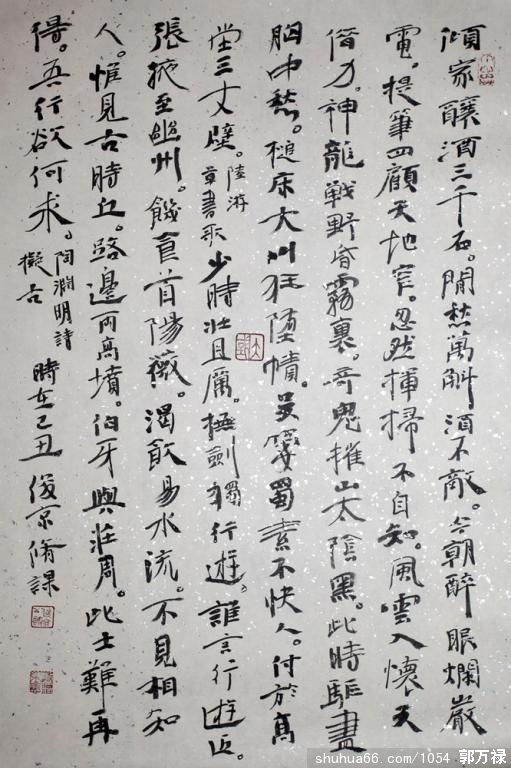 傾家釀酒三千石。閒愁萬斛酒不敵。今朝醉眼爛巖
電。提筆四顧天地窄。忽然揮掃不自知。風雲入懷天
借力。神龍戰野昏霧裏。奇鬼摧山太陰黑。此時驅盡
胸中愁。槌床大叫狂墮幘。吳箋蜀素不快人。付於高
堂三丈壁。陸游草書歌 少時壯且厲。撫劍獨行遊。誰言行遊近。
張掖至幽州。饑食首陽薇。渴飲易水流。不見相知
人。惟見古時丘。路邊兩高墳。伯牙與莊周。此士難再
得。吾行欲何求。陶淵明詩擬古 時在己丑 俊京脩課
shuhua66.com/1054 郭万禄